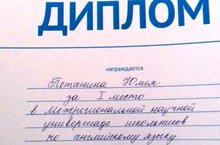 ДИПЛОМ
награждается
Потанина Юлия
за I место
в Межрегиональной научной
универсиаде школьников
по английскому языку